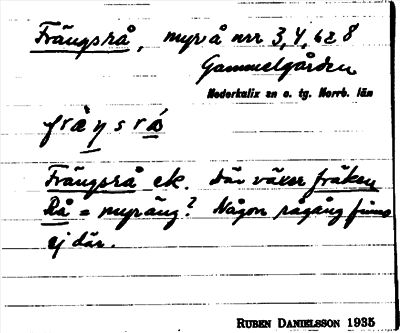 Frängsrå, myrå nrr 3, 4, 6 & 8
Gammelgården
Nederkalix sn o. tg. Norrb. län
frä̀ŋsrǻ
Frängsrå ek. Där växer fräken
Rå = myräng? Någon rågång finns
ej där.
RUBEN DANIELSSON 1935